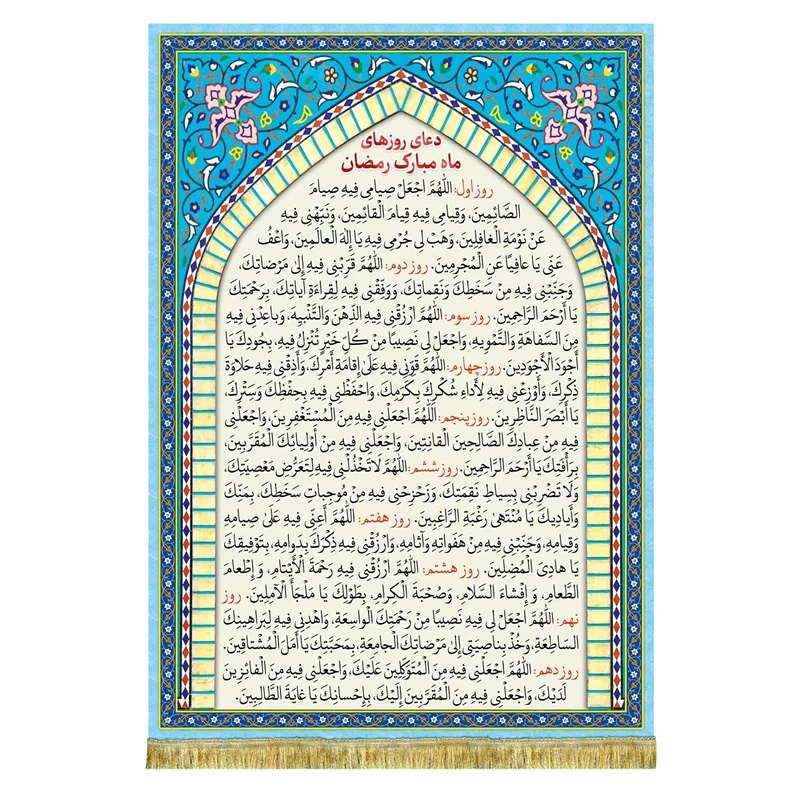 دعای روزهای
ماه مبارک رمضان
روز اول: اللّٰهُمَّ اجْعَلْ صِیامِی فِیهِ صِیامَ
الصَّائِمِینَ، وَقِیامِی فِیهِ قِیامَ الْقائِمِینَ، وَنَبِّهْنِی فِیهِ
عَنْ نَوْمَةِ الْغافِلِینَ، وَهَبْ لِی جُرْمِی فِیهِ یَا إِلٰهَ الْعالَمِینَ، وَاعْفُ
عَنِّی یَا عافِیاً عَنِ الْمُجْرِمِینَ. روز دوم: اللّٰهُمَّ قَرِّبْنِی فِیهِ إِلىٰ مَرْضاتِكَ،
وَجَنِّبْنِی فِیهِ مِنْ سَخَطِكَ وَنَقِماتِكَ، وَوَفِّقْنِی فِیهِ لِقِراءَةِ آیاتِكَ، بِرَحْمَتِكَ
یَا أَرْحَمَ الرَّاحِمِینَ. روز سوم: اللّٰهُمَّ ارْزُقْنِی فِیهِ الذِّهْنَ وَالتَّنْبِیهَ، وَباعِدْنِی فِیهِ
مِنَ السَّفاهَةِ وَالتَّمْوِیهِ، وَاجْعَلْ لِی نَصِیباً مِنْ كُلِّ خَیْرٍ تُنْزِلُ فِیهِ، بِجُودِكَ یَا
أَجْوَدَ الْأَجْوَدِینَ. روز چهارم: اللّٰهُمَّ قَوِّنِی فِیهِ عَلَىٰ إِقامَةِ أَمْرِكَ، وَأَذِقْنِی فِیهِ حَلاوَةَ
ذِكْرِكَ، وَأَوْزِعْنِی فِیهِ لِأَداءِ شُكْرِكَ بِكَرَمِكَ، وَاحْفَظْنِی فِیهِ بِحِفْظِكَ وَسِتْرِكَ،
یَا أَبْصَرَ النَّاظِرِینَ. روز پنجم: اللّٰهُمَّ اجْعَلْنِی فِیهِ مِنَ الْمُسْتَغْفِرِینَ، وَاجْعَلْنِی
فِیهِ مِنْ عِبادِكَ الصَّالِحِینَ الْقانِتِینَ، وَاجْعَلْنِی فِیهِ مِنْ أَوْلِیائِكَ الْمُقَرَّبِینَ،
بِرَأْفَتِكَ یَا أَرْحَمَ الرَّاحِمِینَ. روز ششم: اللّٰهُمَّ لَا تَخْذُلْنِی فِیهِ لِتَعَرُّضِ مَعْصِیَتِكَ،
وَلَا تَضْرِبْنِی بِسِیاطِ نَقِمَتِكَ، وَزَحْزِحْنِی فِیهِ مِنْ مُوجِباتِ سَخَطِكَ، بِمَنِّكَ
وَأَیادِیكَ یَا مُنْتَهىٰ رَغْبَةِ الرَّاغِبِینَ. روز هفتم: اللّٰهُمَّ أَعِنِّی فِیهِ عَلَىٰ صِیامِهِ
وَقِیامِهِ، وَجَنِّبْنِی فِیهِ مِنْ هَفَواتِهِ وَآثامِهِ، وَارْزُقْنِی فِیهِ ذِكْرَكَ بِدَوامِهِ، بِتَوْفِیقِكَ
یَا هادِیَ الْمُضِلِّینَ. روز هشتم: اللّٰهُمَّ ارْزُقْنِی فِیهِ رَحْمَةَ الْأَیْتامِ، وَ إِطْعامَ
الطَّعامِ، وَ إِفْشاءَ السَّلامِ، وَصُحْبَةَ الْكِرامِ، بِطَوْلِكَ یَا مَلْجَأَ الْآمِلِینَ. روز
نهم: اللّٰهُمَّ اجْعَلْ لِی فِیهِ نَصِیباً مِنْ رَحْمَتِكَ الْواسِعَةِ، وَاهْدِنِی فِیهِ لِبَراهِینِكَ
السَّاطِعَةِ، وَخُذْ بِناصِیَتِی إِلىٰ مَرْضاتِكَ الْجامِعَةِ، بِمَحَبَّتِكَ یَا أَمَلَ الْمُشْتاقِینَ.
روز دهم: اللّٰهُمَّ اجْعَلْنِی فِیهِ مِنَ الْمُتَوَكِّلِینَ عَلَیْكَ، وَاجْعَلْنِی فِیهِ مِنَ الْفائِزِینَ
لَدَیْكَ، وَاجْعَلْنِی فِیهِ مِنَ الْمُقَرَّبِینَ إِلَیْكَ، بِإِحْسانِكَ یَا غایَةَ الطَّالِبِینَ.